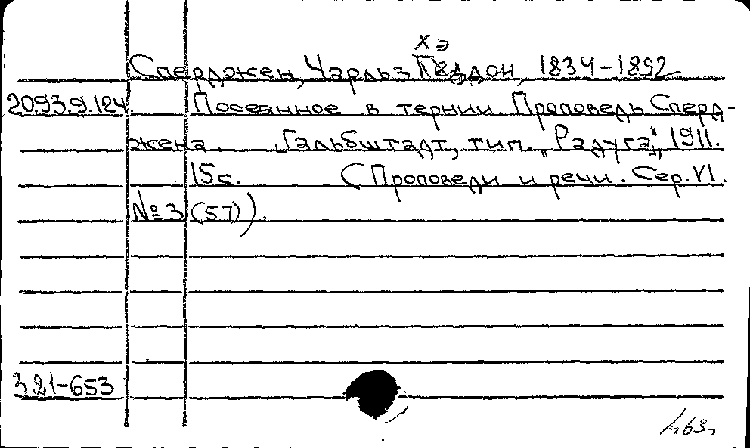 хэ
Сперджен, Чарльз Гаддон, 1834-1892
2093.9.124 Посеянное в тернии. Проповедь Сперд-
жена. Гальбштадт, тип. „Радуга“, 1911.
15с. (Проповеди и речи. Сер. VI.
№3 (57)).
321-653